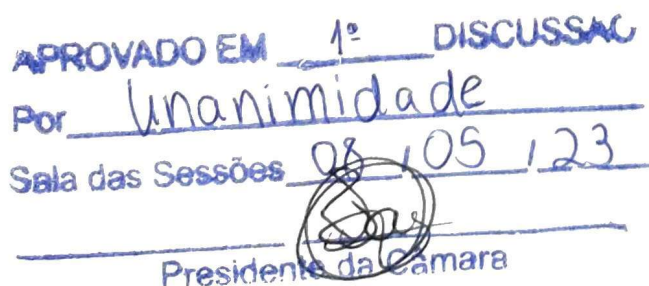 APROVADO EM 1º DISCUSSÃO
Por Unanimidade
Sala das Sessões 08 / 05 / 23
Presidente da Câmara